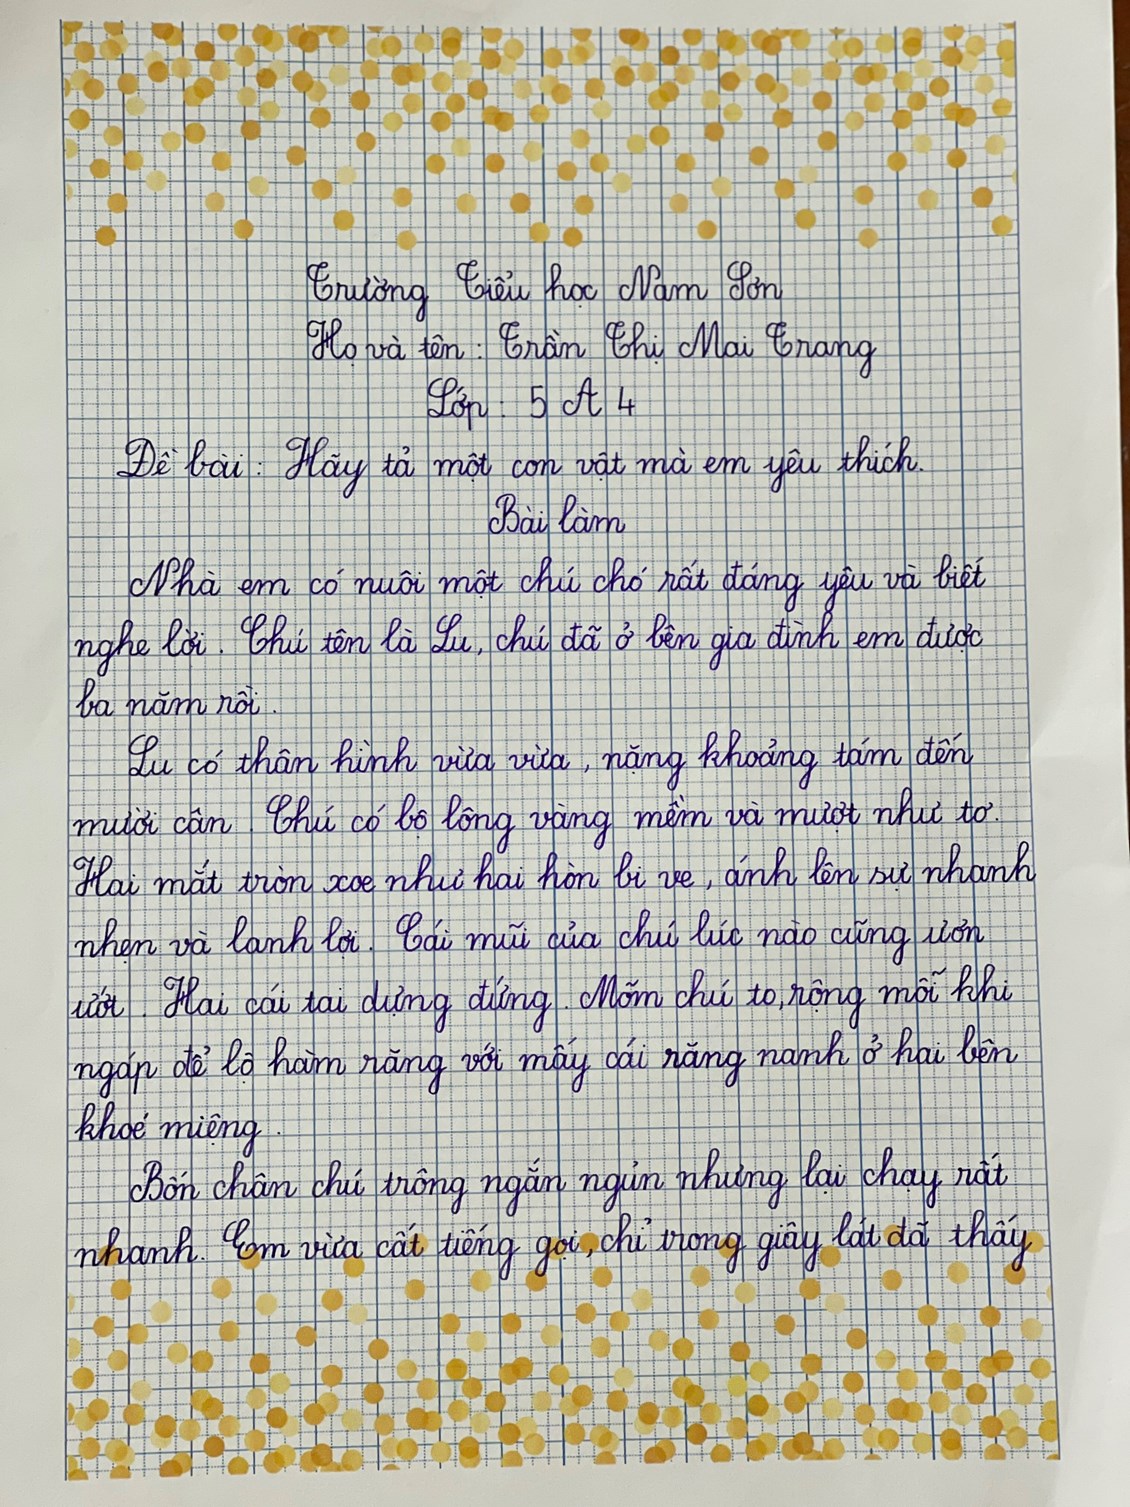 Trường Tiểu học Nam Sơn
Họ và tên: Trần Thị Mai Trang
Lớp: 5 A 4
Đề bài: Hãy tả một con vật mà em yêu thích.
Bài làm
Nhà em có nuôi một chú chó rất đáng yêu và biết
nghe lời. Chú tên là Lu, chú đã ở bên gia đình em được
ba năm rồi.
Lu có thân hình vừa vừa, nặng khoảng tám đến
mười cân. Chú có bộ lông vàng mềm và mượt như tơ.
Hai mắt tròn xoe như hai hòn bi ve, ánh lên sự nhanh
nhẹn và lanh lợi. Cái mũi của chú lúc nào cũng ươn
ướt. Hai cái tai dựng đứng. Mõm chú to, rộng mỗi khi
ngáp để lộ hàm răng với mấy cái răng nanh ở hai bên
khoé miệng.
Bốn chân chú trông ngắn ngủn nhưng lại chạy rất
nhanh. Em vừa cất tiếng gọi, chỉ trong giây lát đã thấy